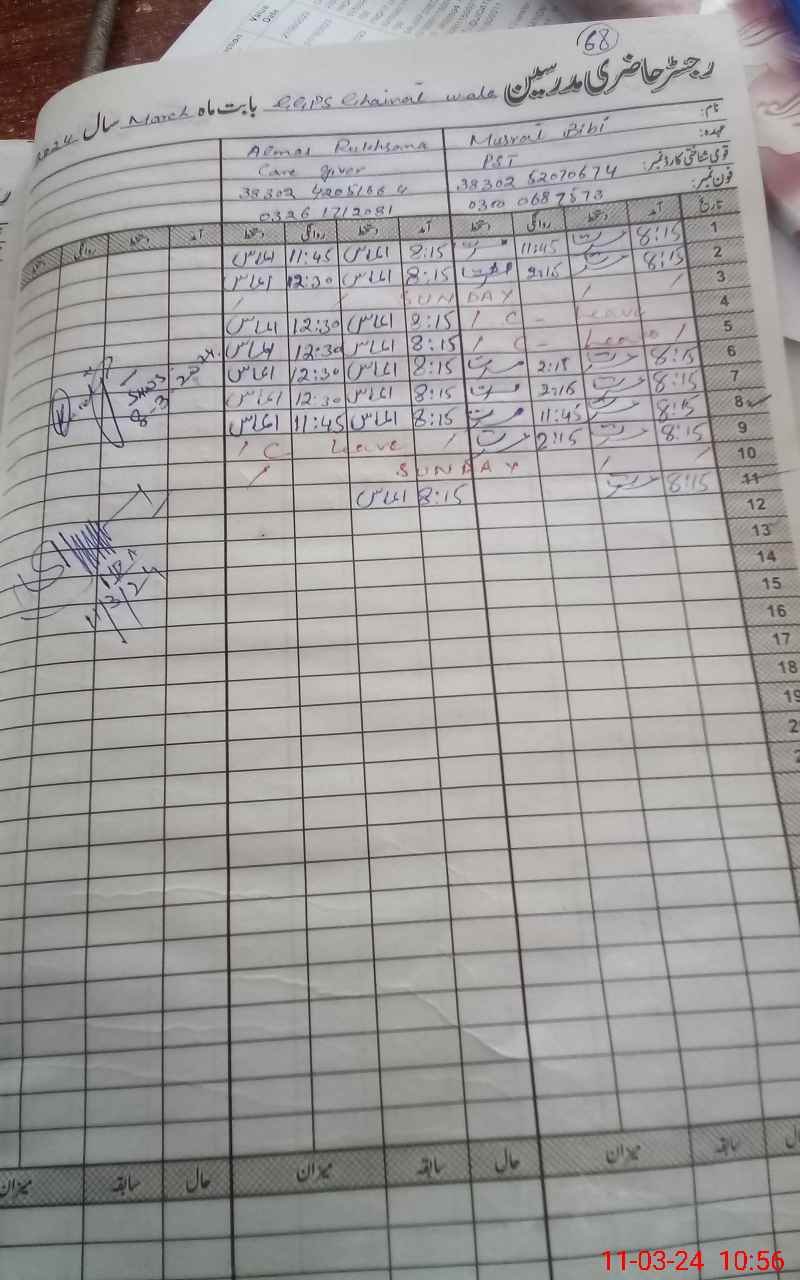 68
رجسٹر حاضری مدرسین G.G.P.S Ghainat wala بابت ماہ March سال 2024
نام: Musrat Bibi Almas Rukhsana
عہدہ: PST Care giver
قومی شناختی کارڈ نمبر: 38302 6207067 4 38302 4205166 4
فون نمبر: 0300 0687573 0326 1712081
تاریخ آمد دستخط روانگی دستخط آمد دستخط روانگی دستخط آمد دستخط روانگی دستخط
1 8:15 مسرت 11:45 مسرت 8:15 الماس 11:45 الماس
2 8:15 مسرت 2:15 مسرت 8:15 الماس 12:30 الماس
3 / / SUNDAY / /
4 / C - Leave 8:15 الماس 12:30 الماس
5 / C - Leave / 8:15 الماس 12:30 الماس
6 8:15 مسرت 2:15 مسرت 8:15 الماس 12:30 الماس
7 8:15 مسرت 2:15 مسرت 8:15 الماس 12:30 الماس
8 8:15 مسرت 11:45 مسرت 8:15 الماس 11:45 الماس
9 8:15 مسرت 2:15 مسرت / C Leave /
10 / / SUNDAY /
11 8:15 مسرت 8:15 الماس
12
13
14
15
16
17
18
19
2
2
8-3-2024
11/3/24
میزان سابقہ حال میزان سابقہ حال میزان سابقہ
11-03-24 10:56